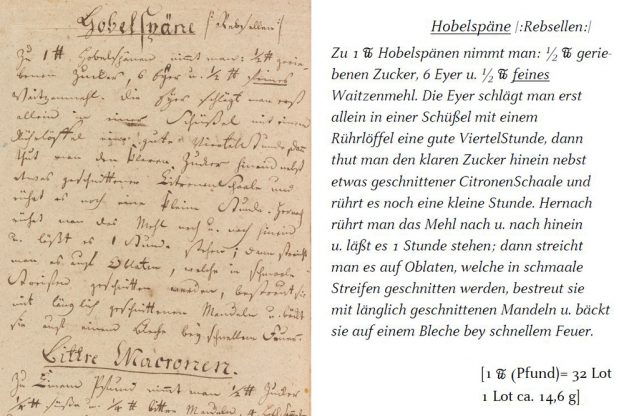 Hobelspäne |:Rebsellen:|
Zu 1 ℔ Hobelspänen nimmt man: ½ ℔ gerie-
benen Zucker, 6 Eyer u. ½ ℔ feines
Waitzenmehl. Die Eyer schlägt man erst
allein in einer Schüßel mit einem
Rührlöffel eine gute ViertelStunde, dann
thut man den klaren Zucker hinein nebst
etwas geschnittener CitronenSchaale und
rührt es noch eine kleine Stunde. Hernach
rührt man das Mehl nach u. nach hinein
u. läßt es 1 Stunde stehen; dann streicht
man es auf Oblaten, welche in schmaale
Streifen geschnitten werden, bestreut sie
mit länglich geschnittenen Mandeln u. bäckt
sie auf einem Bleche bey schnellem Feuer.
Bittre Macronen.
Zu Einem Pfund nimmt man ½ ℔ Zucker
¼ ℔ süße u. ¼ ℔ bittre Mandeln,
Hobelspäne |:Rebsellen:|
Zu 1 ℔ Hobelspänen nimmt man: ½ ℔ gerie-
benen Zucker, 6 Eyer u. ½ ℔ feines
Waitzenmehl. Die Eyer schlägt man erst
allein in einer Schüßel mit einem
Rührlöffel eine gute ViertelStunde, dann
thut man den klaren Zucker hinein nebst
etwas geschnittener CitronenSchaale und
rührt es noch eine kleine Stunde. Hernach
rührt man das Mehl nach u. nach hinein
u. läßt es 1 Stunde stehen; dann streicht
man es auf Oblaten, welche in schmaale
Streifen geschnitten werden, bestreut sie
mit länglich geschnittenen Mandeln u. bäckt
sie auf einem Bleche bey schnellem Feuer.
[1 ℔ (Pfund)= 32 Lot
1 Lot ca. 14,6 g]